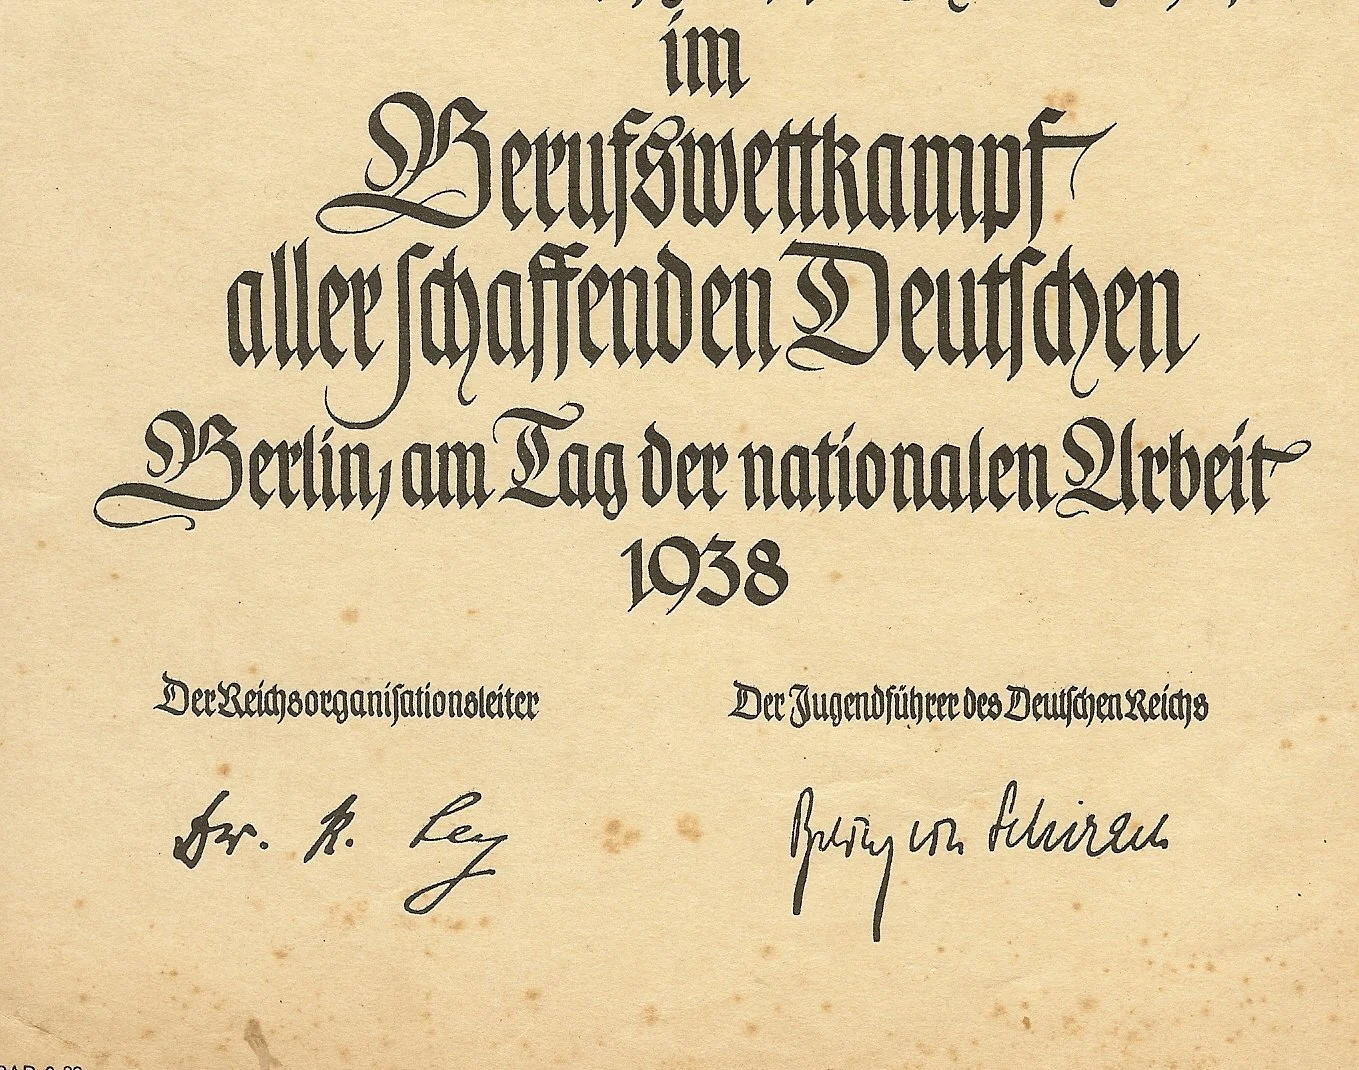 im
Berufswettkampf
aller schaffenden Deutschen
Berlin, am Tag der nationalen Arbeit
1938
Der Reichsorganisationsleiter
Der Jugendführer des Deutschen Reichs
Dr. R. Ley
Baldur von Schirach